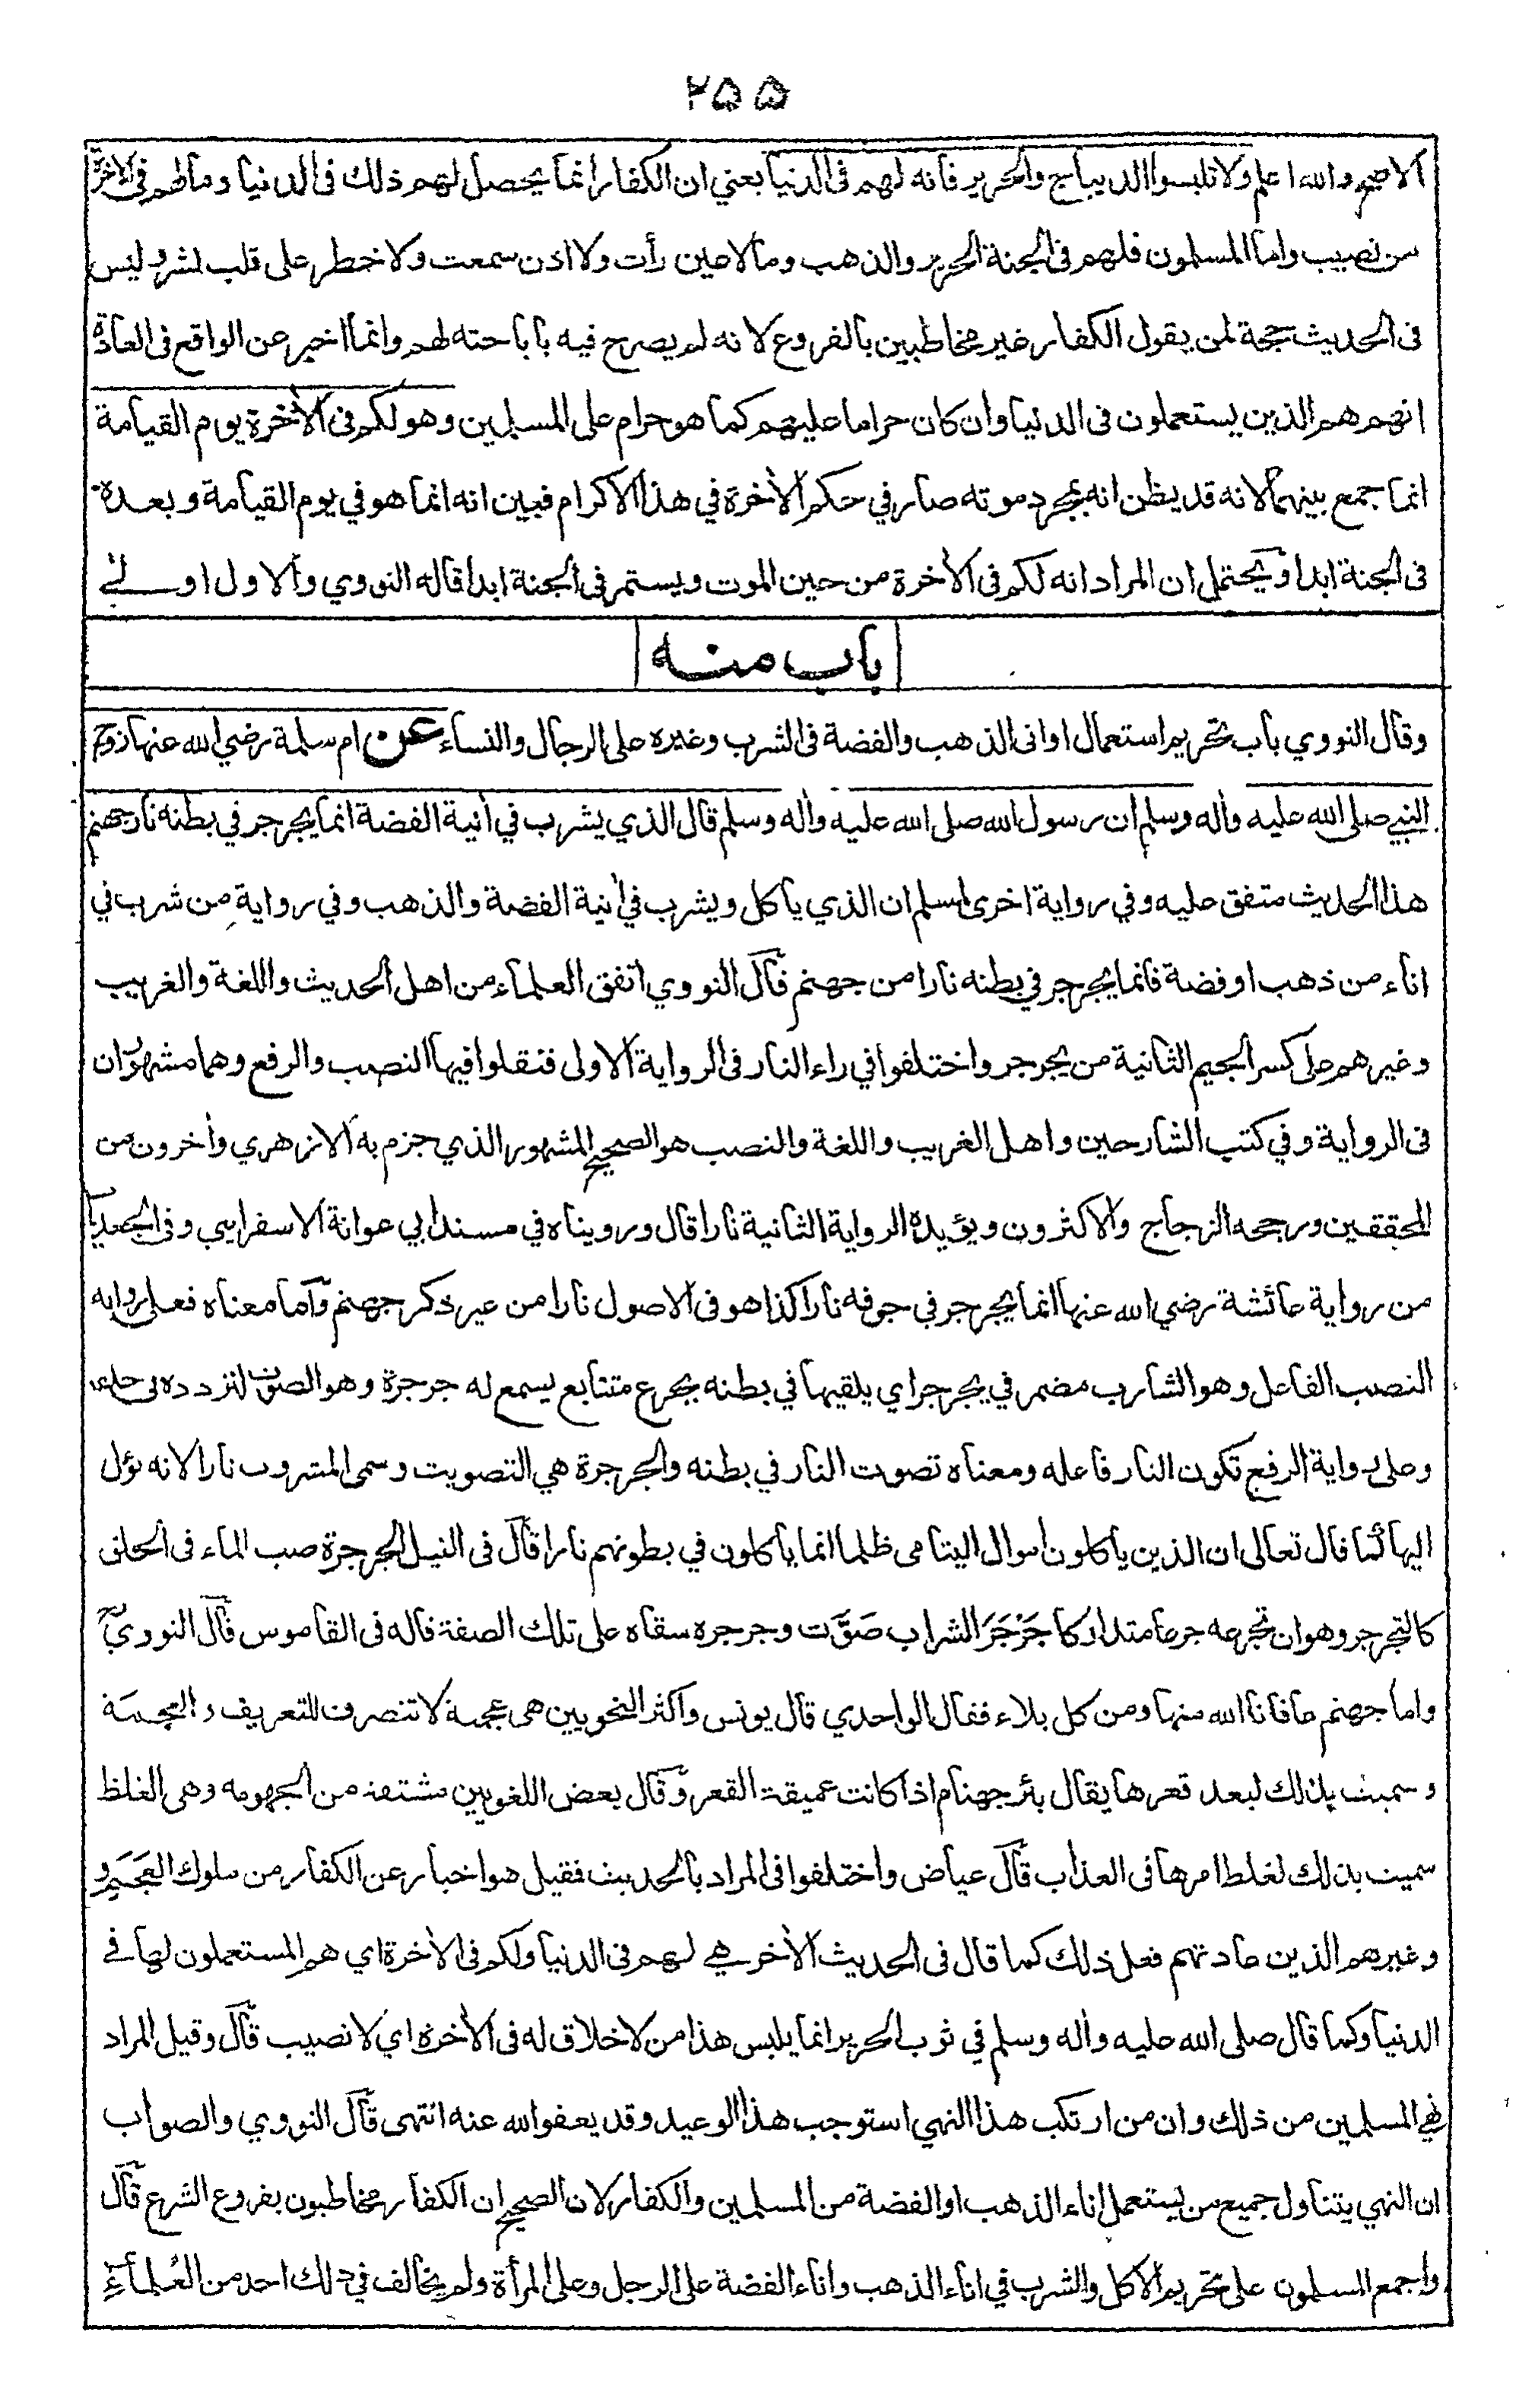 ٢٥٥
الاصم والله اعلم ولا تلبسوا الديباج والحرير فانه لهم فى الدنيا يعني ان الكفار انما يحصل لهم ذلك فى الدنيا وما لهم فى الاخرة
من نصيب واما المسلمون فلهم فى الجنة الحرير والذهب وما لا عين رأت ولا اذن سمعت ولا خطر على قلب بشر وليس
فى الحديث حجة لمن يقول الكفار غير مخاطبين بالفروع لانه لم يصرح فيه باباحته لهم وانما اخبر عن الواقع فى العادة
انهم هم الذين يستعملون فى الدنيا وان كان حراما عليهم كما هو حرام على المسلمين وهو لكم فى الأخرة يوم القيامة
انما جمع بينهما لانه قد يظن انه بمجرد موته صار في حكم الأخرة في هذا الاكرام فبين انه انما هو في يوم القيامة وبعده
فى الجنة ابدا ويحتمل ان المراد انه لكم فى الأخرة من حين الموت ويستمر فى الجنة ابدا قاله النووي والاول اولى
باب منه
وقال النووي باب تحريم استعمال اوانى الذهب والفضة فى الشرب وغيره على الرجال والنساء عن ام سلمة رضي الله عنها زوج
النبي صلى الله عليه وأله وسلم ان رسول الله صلى الله عليه وأله وسلم قال الذي يشرب في أنية الفضة انما يجرجر في بطنه نار جهنم
هذا الحديث متفق عليه وفي رواية اخرى لمسلم ان الذي يأكل ويشرب في أنية الفضة والذهب وفي رواية من شرب في
اناء من ذهب او فضة فانما يجرجر في بطنه نارا من جهنم قال النووي اتفق العلماء من اهل الحديث واللغة والغريب
وغيرهم على كسر الجيم الثانية من يجرجر واختلفوا في راء النار فى الرواية الاولى فنقلوا فيها النصب والرفع وهما مشهوران
فى الرواية وفي كتب الشارحين واهل الغريب واللغة والنصب هو الصحيح المشهور الذي جزم به الازهري وأخرون من
المحققين ورجحه الزجاج والاكثرون ويؤيده الرواية الثانية نارا قال ورويناه في مسند ابي عوانة الاسفرايني وفى الجعديا
من رواية عائشة رضي الله عنها انما يجرجر في جوفه نارا كذا هو فى الاصول نارا من غير ذكر جهنم وأما معناه فعلى رواية
النصب الفاعل وهو الشارب مضمر في يجرجر اي يلقيها في بطنه بجرع متتابع يسمع له جرجرة وهو الصوت لتردده في حلقه
وعلى رواية الرفع تكون النار فاعله ومعناه تصوت النار في بطنه والجرجرة هي التصويت وسمى المشروب نارا لانه يؤل
اليها كما قال تعالى ان الذين يأكلون اموال اليتامى ظلما انما يأكلون في بطونهم نارا قال فى النيل الجرجرة صب الماء فى الحلق
كالتجرجر وهو ان تجرعه جرعا متداركا جَرْجَرَ الشراب صَوَّت وجرجره سقاه على تلك الصفة قاله فى القاموس قال النووي
واما جهنم عافانا الله منها ومن كل بلاء فقال الواحدي قال يونس واكثر النحويين هى عجمية لا تنصرف للتعريف والعجمة
وسميت بذلك لبعد قعرها يقال بئر جهنام اذا كانت عميقة القعر وقال بعض اللغويين مشتقة من الجهومة وهى الغلظ
سميت بذلك لغلظ امرها فى العذاب قال عياض واختلفوا فى المراد بالحديث فقيل هو اخبار عن الكفار من ملوك العَجَم و
وغيرهم الذين عادتهم فعل ذلك كما قال فى الحديث الأخر هي لهم فى الدنيا ولكم فى الأخرة اي هم المستعملون لها في
الدنيا وكما قال صلى الله عليه وأله وسلم في ثوب الحرير انما يلبس هذا من لا خلاق له فى الأخرة اي لا نصيب قال وقيل المراد
نهي المسلمين من ذلك وان من ارتكب هذا النهي استوجب هذا الوعيد وقد يعفو الله عنه انتهى قال النووي والصواب
ان النهي يتناول جميع من يستعمل اناء الذهب او الفضة من المسلمين والكفار لان الصحيح ان الكفار مخاطبون بفروع الشرع قال
واجمع المسلمون على تحريم الاكل والشرب في اناء الذهب واناء الفضة على الرجل وعلى المرأة ولم يخالف في ذلك احد من العلماء